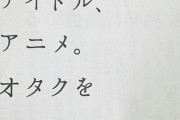 アイドル、
アニメ。
オタクを